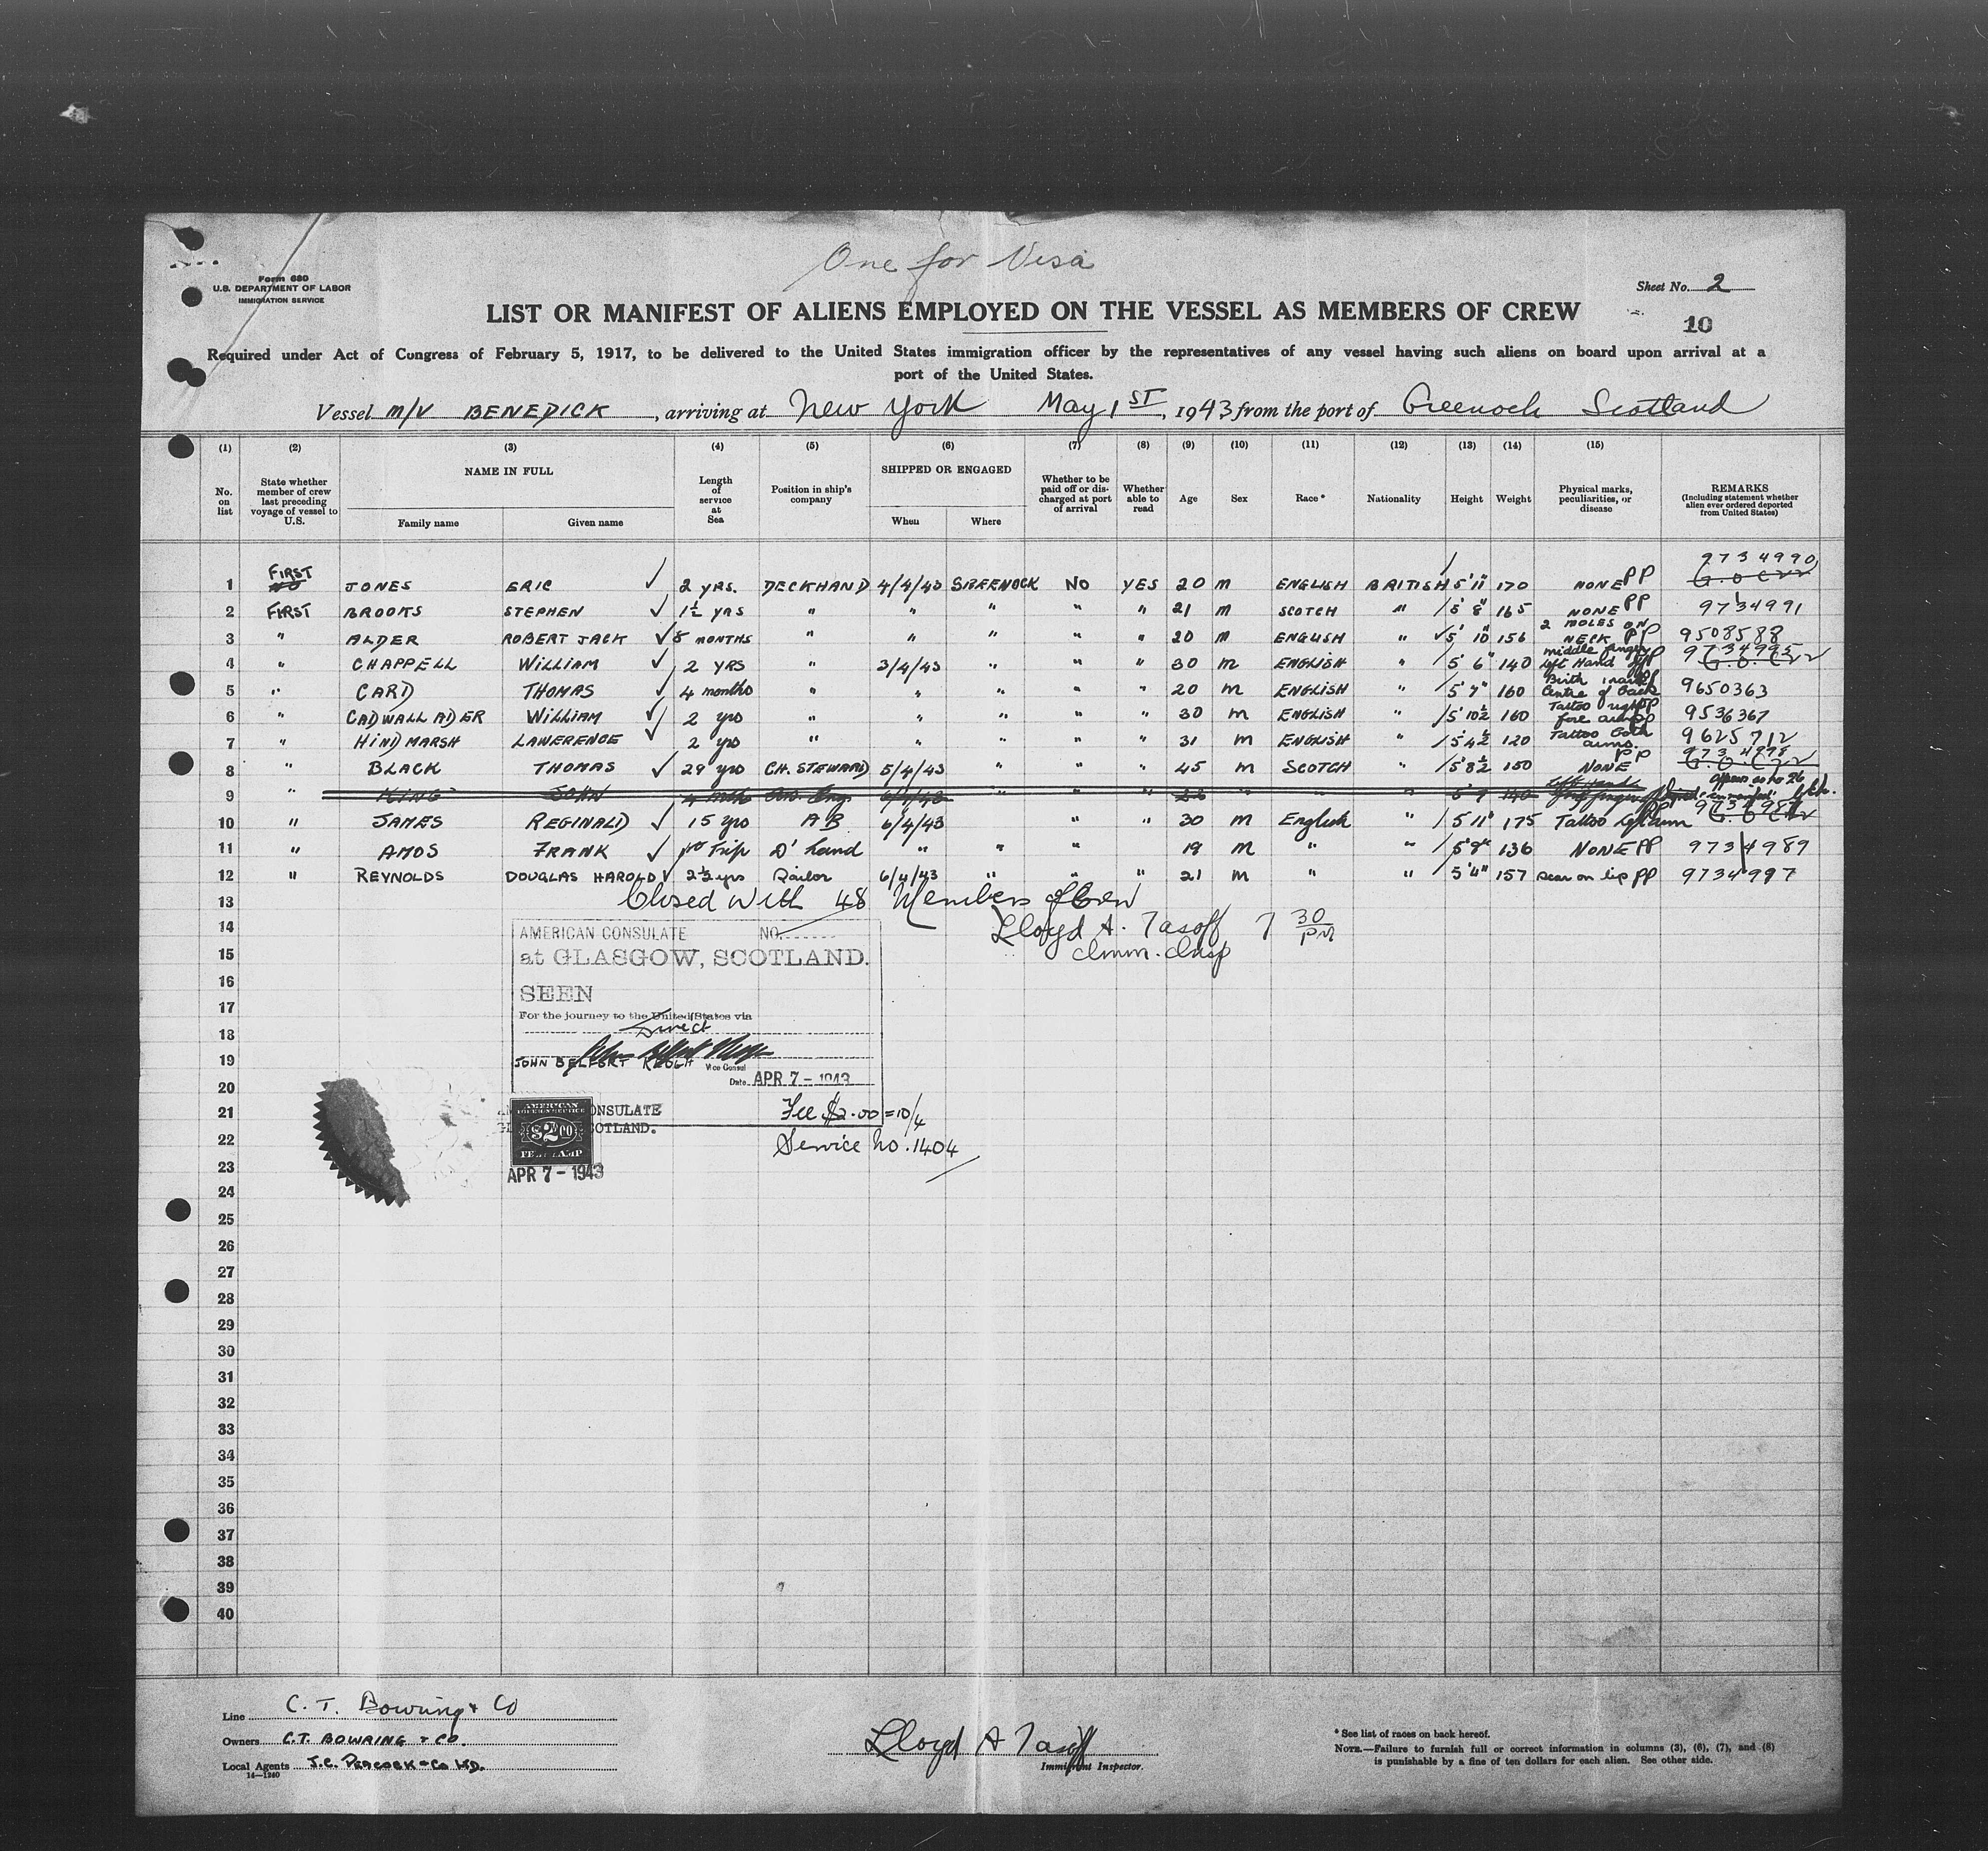 One for Visa
Form 680
U.S. DEPARTMENT OF LABOR
IMMIGRATION SERVICE
Sheet No. 2
LIST OR MANIFEST OF ALIENS EMPLOYED ON THE VESSEL AS MEMBERS OF CREW
10
Required under Act of Congress of February 5, 1917, to be delivered to the United States immigration officer by the representatives of any vessel having such aliens on board upon arrival at a
port of the United States.
Vessel M/V BENEDICK, arriving at New York May 1ST, 1943 from the port of Greenock Scotland
(1) (2) (3) (4) (5) (6) (7) (8) (9) (10) (11) (12) (13) (14) (15)
No. on list
State whether member of crew last preceding voyage of vessel to U.S.
NAME IN FULL
Family name Given name
Length of service at Sea
Position in ship's company
SHIPPED OR ENGAGED
When Where
Whether to be paid off or discharged at port of arrival
Whether able to read
Age Sex Race* Nationality Height Weight
Physical marks, peculiarities, or disease
REMARKS
(Including statement whether alien ever ordered deported from United States)
1 FIRST JONES ERIC ✓ 2 YRS. DECKHAND 4/4/43 GREENOCK NO YES 20 M ENGLISH BRITISH 5'11" 170 NONE PP 9734990
2 FIRST BROOKS STEPHEN ✓ 1½ YRS " " " " " 21 M SCOTCH " 5'8" 165 NONE PP 9734991
3 " ALDER ROBERT JACK ✓ 8 MONTHS " " " " " 20 M ENGLISH " 5'10" 156 2 MOLES ON NECK PP 9508588
4 " CHAPPELL WILLIAM ✓ 2 YRS " 3/4/43 " " " 30 M ENGLISH " 5'6" 140 middle finger left Hand PP 9734995
5 " CARD THOMAS ✓ 4 months " " " " " 20 M ENGLISH " 5'7" 160 Birth mark Centre of Back 9650363
6 " CADWALLADER WILLIAM ✓ 2 yrs " " " " " 30 M ENGLISH " 5'10½ 160 Tattoo right fore arm PP 9536367
7 " HINDMARSH LAWERENCE ✓ 2 yrs " " " " " 31 M ENGLISH " 5'4½ 120 Tattoo Both arms. PP 9625712
8 " BLACK THOMAS ✓ 29 yrs CH. STEWARD 5/4/43 " " " 45 M SCOTCH " 5'8½ 150 NONE PP 9734998
9 " KING JOHN 4 mths 6/4/43 " " " " " 5'9 140 appears as no 26
10 " JAMES REGINALD ✓ 15 yrs AB 6/4/43 " " 30 M English " 5'11" 175 Tattoo left arm PP 9734987
11 " AMOS FRANK ✓ 1st Trip D'hand " " " 19 M " " 5'8" 136 NONE PP 9734989
12 " REYNOLDS DOUGLAS HAROLD ✓ 2½ yrs Sailor 6/4/43 " " " 21 M " " 5'4" 157 Scar on lip PP 9734997
13 Closed with 48 Members of Crew
14 Lloyd A. Tasoff 7 30 PM
15 Imm. Insp
16
17
18
19
20
21
22
23
24
25
26
27
28
29
30
31
32
33
34
35
36
37
38
39
40
AMERICAN CONSULATE NO.
at GLASGOW, SCOTLAND.
SEEN
For the journey to the United States via
Direct
JOHN BELFORT KEOGH Vice Consul
Date APR 7 - 1943
AMERICAN CONSULATE
GLASGOW, SCOTLAND.
AMERICAN
FOREIGN SERVICE
$2 00
FEE STAMP
APR 7 - 1943
Fee $2.00 = 10/4
Service No. 1404
Line C. T. Bowring & Co
Owners C.T. BOWRING & CO.
Local Agents J.C. PEACOCK & Co LTD.
14—1240
Lloyd A Tasoff
Immigrant Inspector.
* See list of races on back hereof.
NOTE.—Failure to furnish full or correct information in columns (3), (6), (7), and (8)
is punishable by a fine of ten dollars for each alien. See other side.